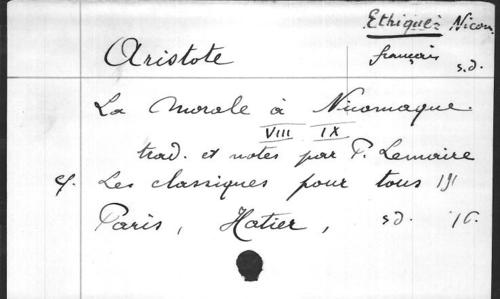 Ethique: Nicom
Aristote
français
s.d.
La Morale à Nicomaque.
VIII IX
trad. et notes par P. Lemaire
cf. Les classiques pour tous
Paris, Hatier, sd. 16.